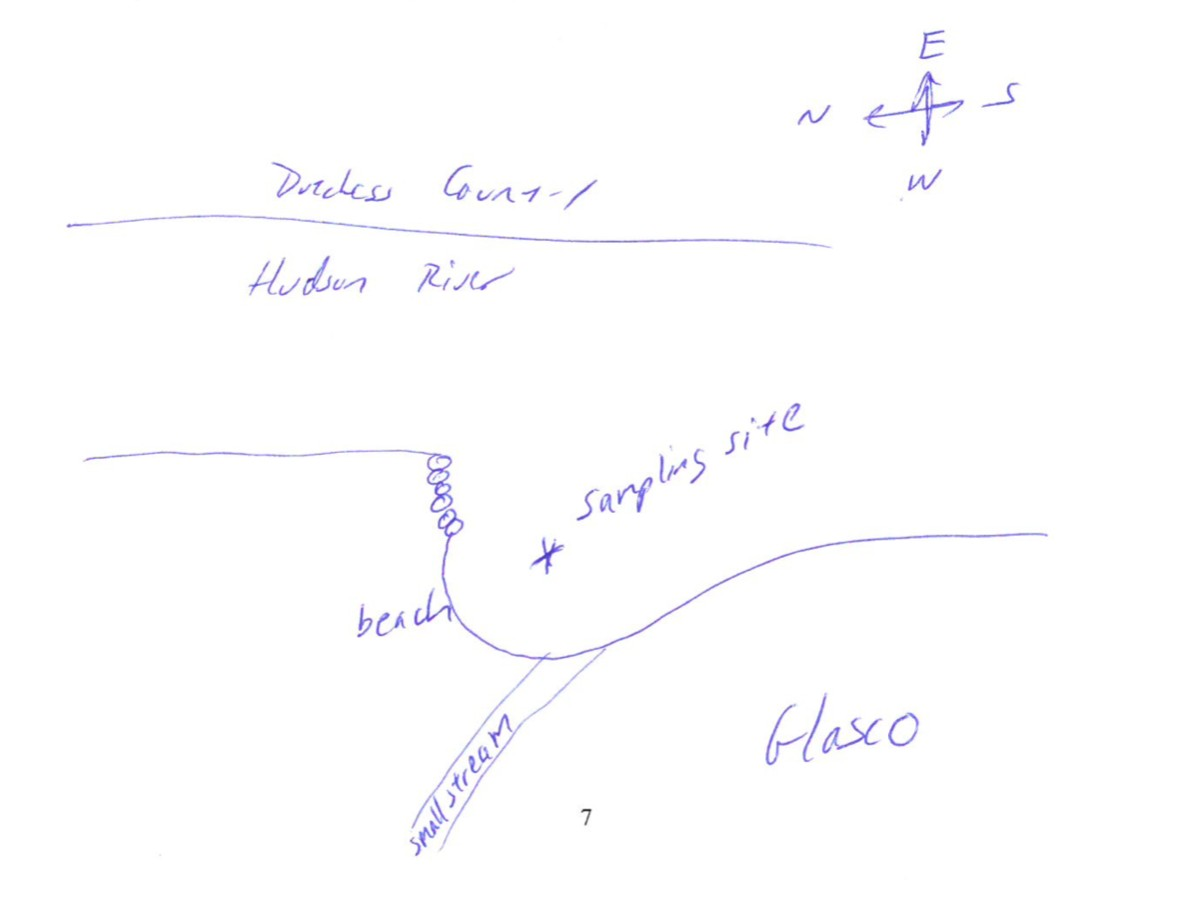 E
N S
W
Dutchess County
Hudson River
sampling site
beach
small stream
Glasco
7